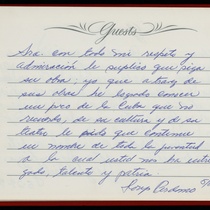 Guests
Ana con todo mi respeto y
admiración le suplico que siga
su obra; ya que a traves de
sus obras he logrado conocer
un poco de la Cuba que no
recuerdo, de su cultura y de su
teatro le pido que continue
en nombre de toda la juventud
a la cual usted nos ha entre
gado, talento y patria.
Cardoso